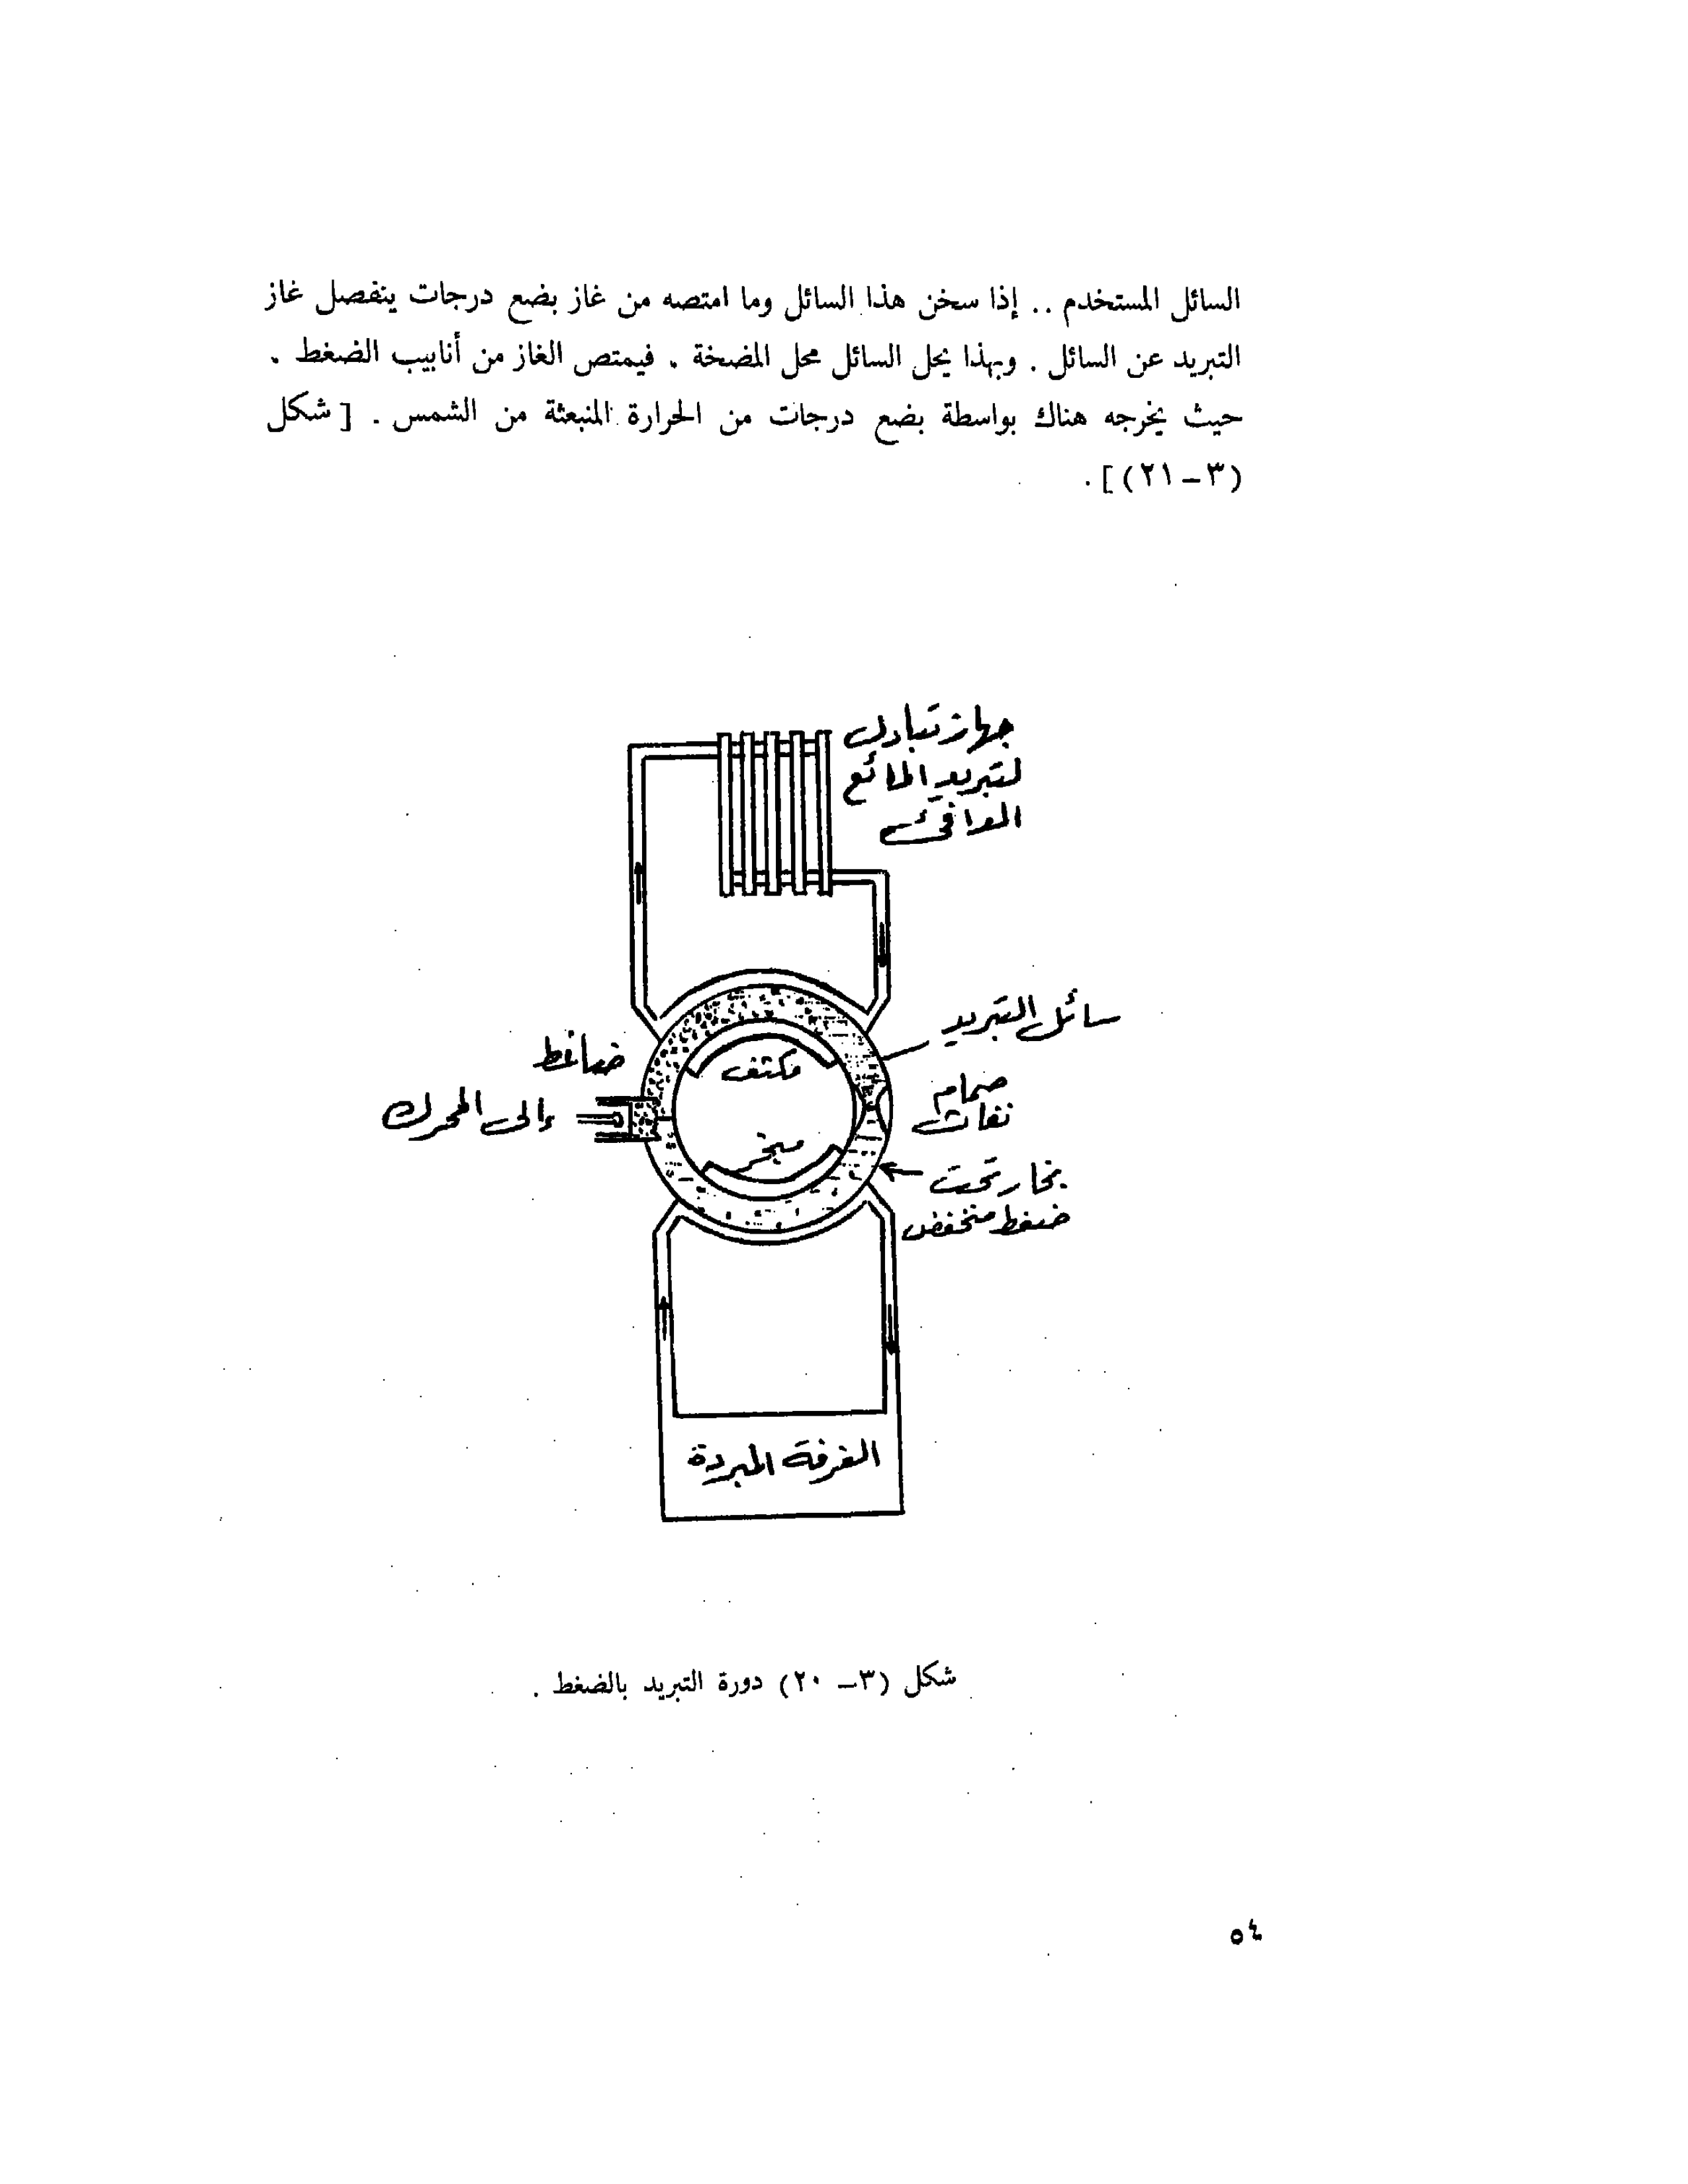 السائل المستخدم .. إذا سخن هذا السائل وما امتصه من غاز بضع درجات ينفصل غاز
التبريد عن السائل . وبهذا يحل السائل محل المضخة . فيمتص الغاز من أنابيب الضغط .
حيث يخرجه هناك بواسطة بضع درجات من الحرارة المنبعثة من الشمس . [ شكل
(٣ – ٢١) ] .
جهاز تبادل
لتبريد المائع
الدافئ
سائل التبريد
ضاغط
مكثف
صمام
نفاث
إلى المحرك
مبخر
بخار تحت
ضغط منخفض
الغرفة المبردة
شكل (٣ – ٢٠) دورة التبريد بالضغط .
٥٤